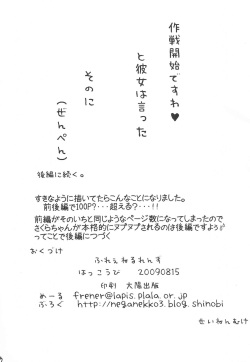 作戦開始ですわ♥
と彼女は言った
そのに
(ぜんぺん)
後編に続く。
すきなように描いてたらこんなことになりました。
前後編で100P?・・・超える?・・・!!
前編がそのいちと同じようなページ数になってしまったので
さくらちゃんが本格的にヌプヌプされるのは後編ですよぅ
ってことで後編につづく
おくづけ
ふれぇねるれんず
はっこうび 20090815
印刷 大陽出版
めーる frener@lapis.plala.or.jp
ぶろぐ http://neganekko3.blog.shinobi
せいねんむけ